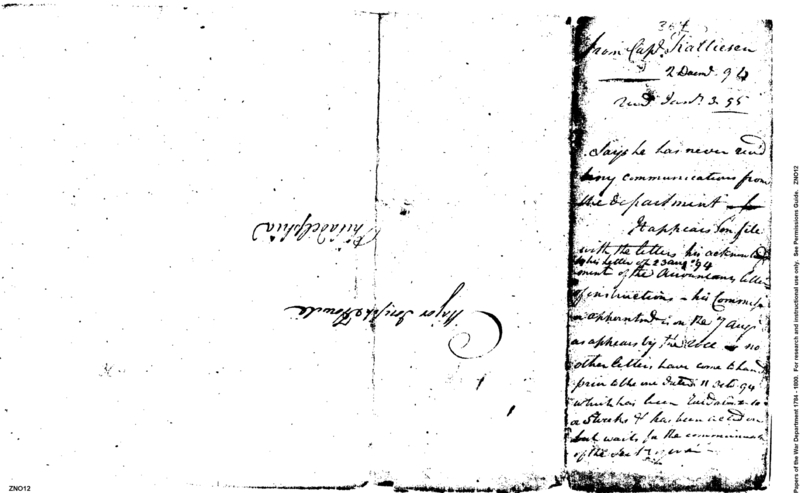 from Capt.
2 Decemr. 94
recd Jany. 3. 95
Says he has never recd
any communications from
the department
It appears on file
with the letters his acknowledg
to his letter of 23 augt 94
ment of the Accountants letter
of instructions - his Commission
appointed is on the 7 augt
as appears by the voce no
other letters have come to hand
prior to the one dated 11 Octr. 94
which has been
a Weeks & has been acted on
but waits for the communication
of the Secy
Major Joseph Howell
Philadelphia
ZNO12
Papers of the War Department 1784 - 1800. For research and instructional use only. See Permissions Guide. ZNO12